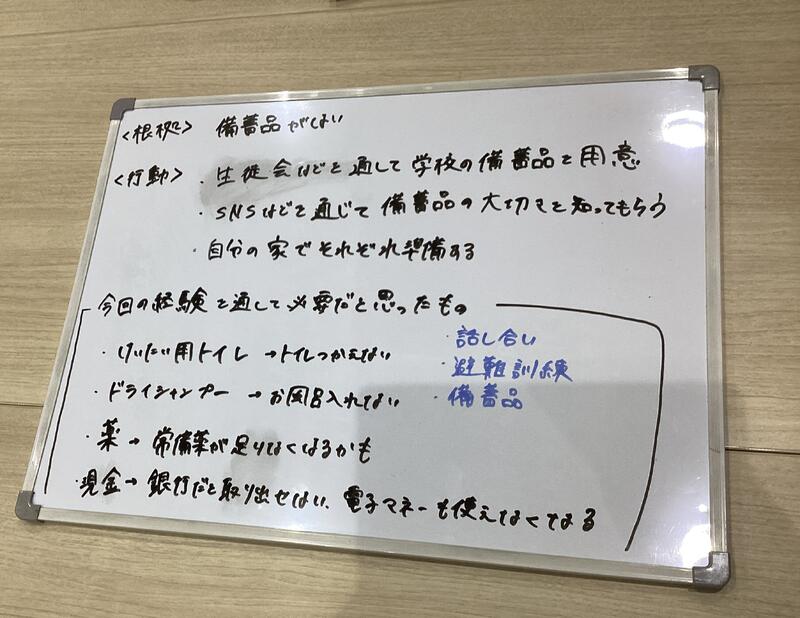 <根拠> 備蓄品がない
<行動> ・生徒会などを通して学校の備蓄品を用意
・SNSなどを通じて備蓄品の大切さを知ってもらう
・自分の家でそれぞれ準備する
今回の経験を通して必要だと思ったもの
・けいたい用トイレ→トイレつかえない
・ドライシャンプー→お風呂入れない
・薬→常備薬が足りなくなるかも
・現金→銀行だと取り出せない、電子マネーも使えなくなる
・話し合い
・避難訓練
・備蓄品